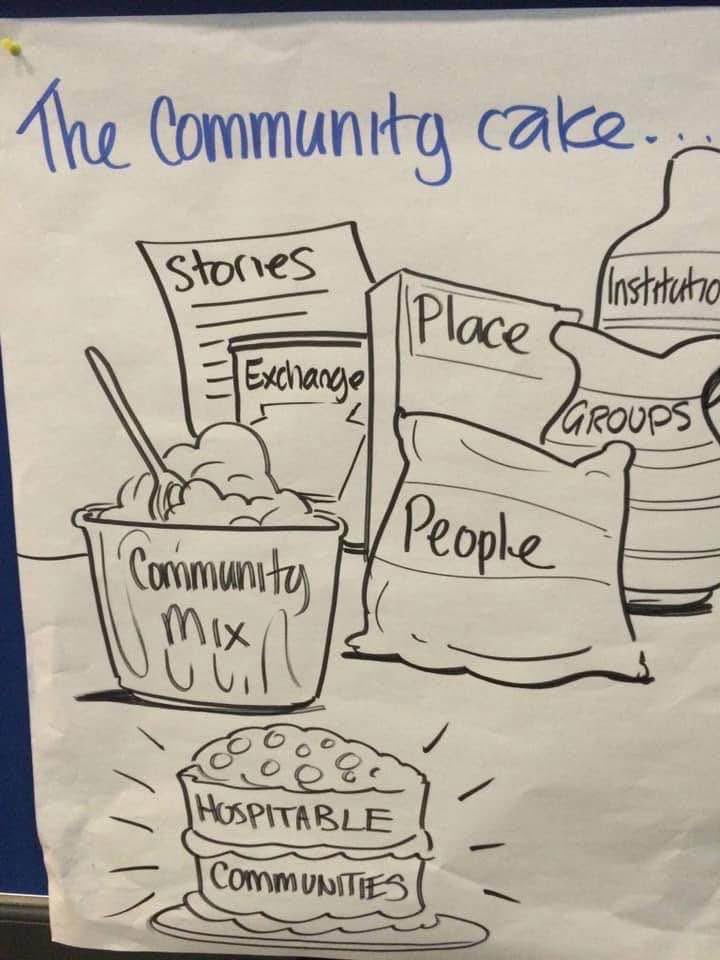 The Community cake...
Stories
Exchange
Place
Institutio
GROUPS
People
Community
Mix
HOSPITABLE
COMMUNITIES